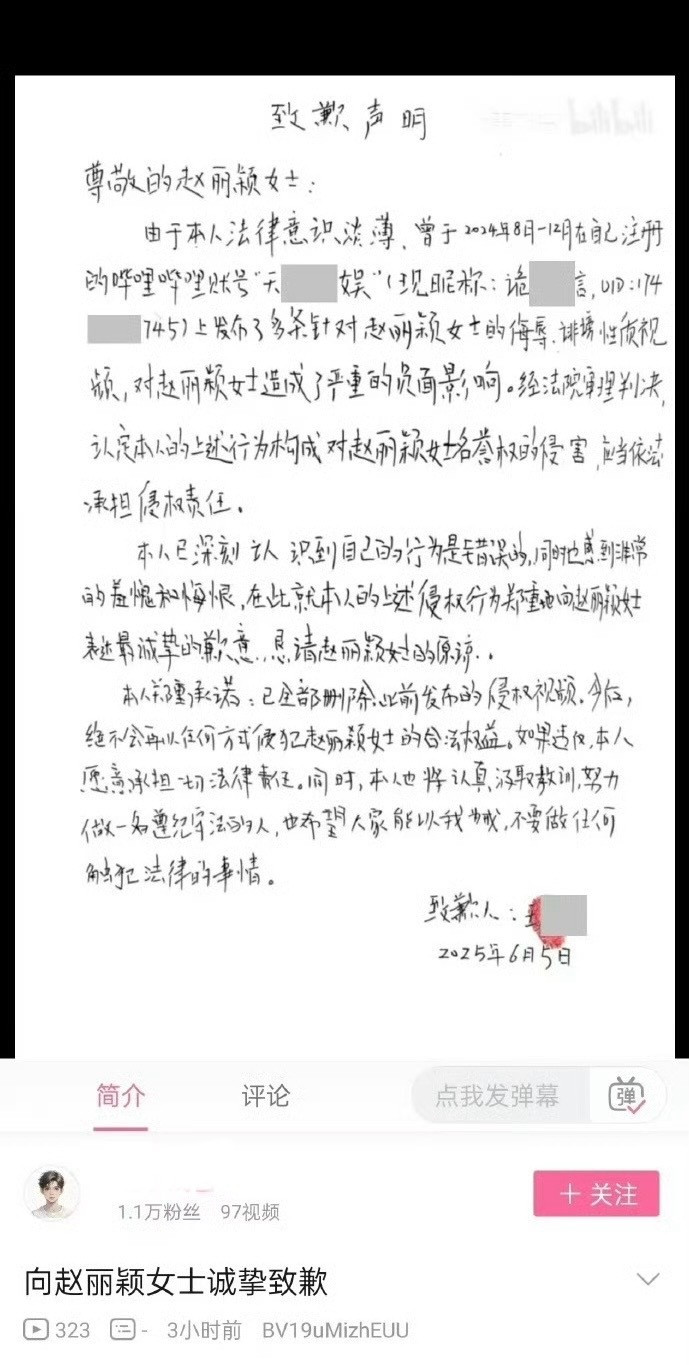 致歉声明
尊敬的赵丽颖女士：
由于本人法律意识淡薄、曾于2024年8月-12月在自己注册
的哔哩哔哩账号"天 娱"(现昵称：诡 言，UID：174
745)上发布了多条针对赵丽颖女士的侮辱、诽谤性质视
频，对赵丽颖女士造成了严重的负面影响。经法院审理判决，
认定本人的上述行为构成对赵丽颖女士名誉权的侵害，应当依法
承担侵权责任。
本人已深刻认识到自己的行为是错误的，同时也感到非常
的羞愧和悔恨，在此就本人的上述侵权行为郑重地向赵丽颖女士
表达最诚挚的歉意，恳请赵丽颖女士的原谅。
本人郑重承诺：已全部删除此前发布的侵权视频。今后，
绝不会再以任何方式侵犯赵丽颖女士的合法权益。如果违反，本人
愿意承担一切法律责任。同时，本人也将认真汲取教训，努力
做一名遵纪守法的人，也希望大家能以我为戒，不要做任何
触犯法律的事情。
致歉人：
2025年6月5日
简介 评论 点我发弹幕 弹
1.1万粉丝 97视频
＋ 关注
向赵丽颖女士诚挚致歉
323 - 3小时前 BV19uMizhEUU